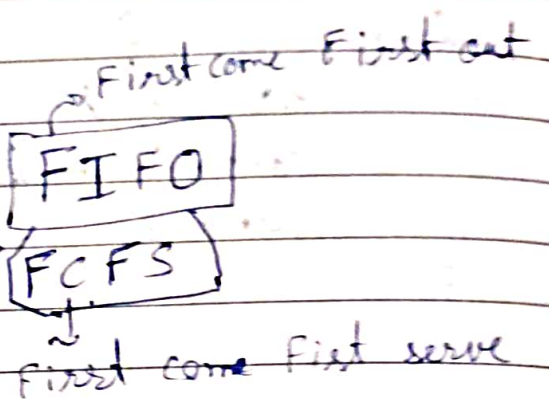 First come First out
FIFO
FCFS
First come Fist serve